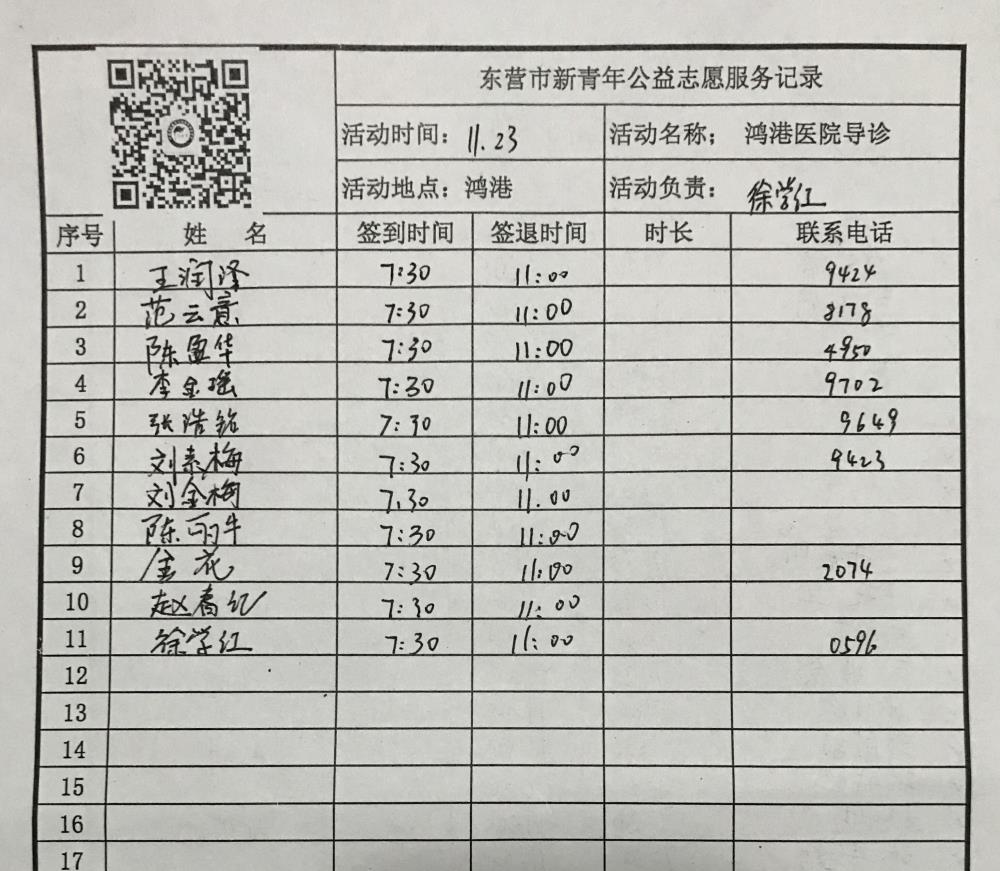 东营市新青年公益志愿服务记录
活动时间：11.23 活动名称； 鸿港医院导诊
活动地点：鸿港 活动负责：徐学红
序号 姓 名 签到时间 签退时间 时长 联系电话
1 王润泽 7:30 11:00 9424
2 范云意 7:30 11:00 8178
3 陈盈华 7:30 11:00 4950
4 李金瑶 7:30 11:00 9702
5 张浩铭 7:30 11:00 9649
6 刘素梅 7:30 11:00 9423
7 刘金梅 7.30 11.00
8 陈 7:30 11:00
9 金花 7:30 11:00 2074
10 赵春红 7:30 11:00
11 徐学红 7:30 11:00 0596
12
13
14
15
16
17